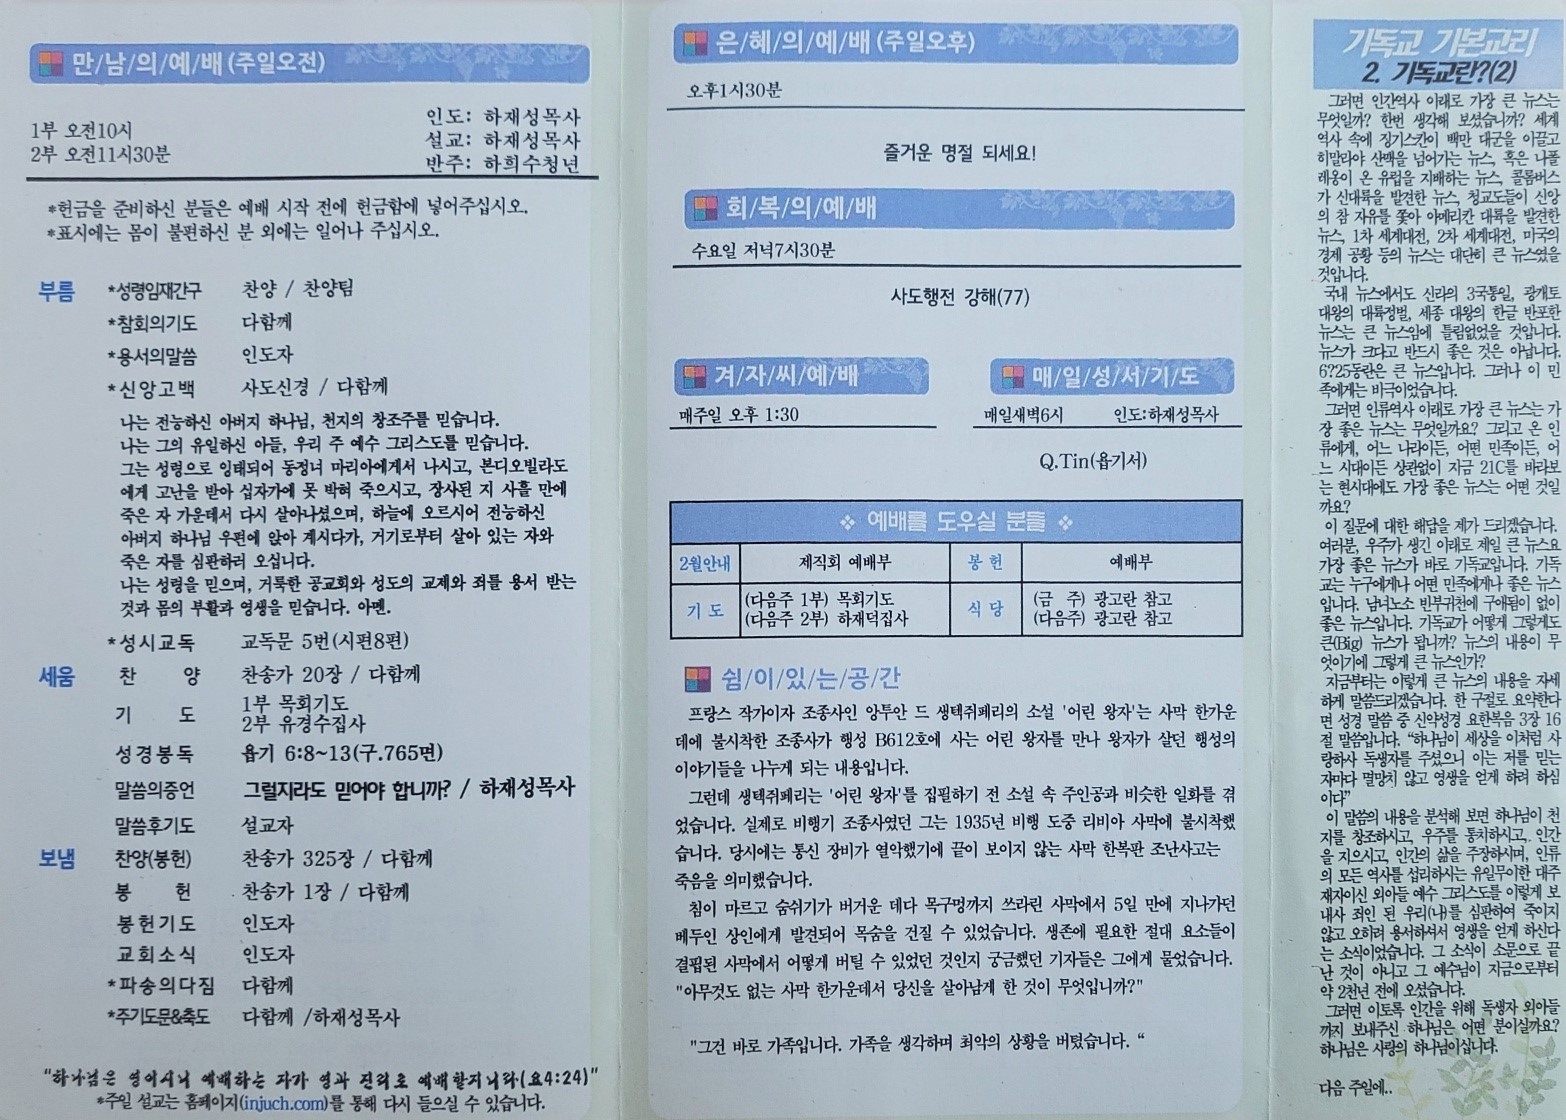 만/남/의/예/배(주일오전)
1부 오전10시
2부 오전11시30분
인도: 하재성목사
설교: 하재성목사
반주: 하희수청년
*헌금을 준비하신 분들은 예배 시작 전에 헌금함에 넣어주십시오.
*표시에는 몸이 불편하신 분 외에는 일어나 주십시오.
부름 *성령임재간구 찬양 / 찬양팀
*참회의기도 다함께
*용서의말씀 인도자
*신앙고백 사도신경 / 다함께
나는 전능하신 아버지 하나님, 천지의 창조주를 믿습니다.
나는 그의 유일하신 아들, 우리 주 예수 그리스도를 믿습니다.
그는 성령으로 잉태되어 동정녀 마리아에게서 나시고, 본디오빌라도
에게 고난을 받아 십자가에 못 박혀 죽으시고, 장사된 지 사흘 만에
죽은 자 가운데서 다시 살아나셨으며, 하늘에 오르시어 전능하신
아버지 하나님 우편에 앉아 계시다가, 거기로부터 살아 있는 자와
죽은 자를 심판하러 오십니다.
나는 성령을 믿으며, 거룩한 공교회와 성도의 교제와 죄를 용서 받는
것과 몸의 부활과 영생을 믿습니다. 아멘.
*성시교독 교독문 5번(시편8편)
세움 찬 양 찬송가 20장 / 다함께
기 도 1부 목회기도
2부 유경수집사
성경봉독 욥기 6:8~13(구.765면)
말씀의증언 그럴지라도 믿어야 합니까? / 하재성목사
말씀후기도 설교자
보냄 찬양(봉헌) 찬송가 325장 / 다함께
봉 헌 찬송가 1장 / 다함께
봉헌기도 인도자
교회소식 인도자
*파송의다짐 다함께
*주기도문&축도 다함께 /하재성목사
"하나님은 영이시니 예배하는 자가 영과 진리로 예배할지니라(요4:24)"
*주일 설교는 홈페이지(injuch.com)를 통해 다시 들으실 수 있습니다.
은/혜/의/예/배(주일오후)
오후1시30분
즐거운 명절 되세요!
회/복/의/예/배
수요일 저녁7시30분
사도행전 강해(77)
겨/자/씨/예/배
매주일 오후 1:30
매/일/성/서/기/도
매일새벽6시 인도:하재성목사
Q.Tin(욥기서)
❖ 예배를 도우실 분들 ❖
2월안내 제직회 예배부 봉 헌 예배부
기 도 (다음주 1부) 목회기도 식 당 (금 주) 광고란 참고
(다음주 2부) 하재덕집사 (다음주) 광고란 참고
쉼/이/있/는/공/간
프랑스 작가이자 조종사인 앙투안 드 생텍쥐페리의 소설 '어린 왕자'는 사막 한가운
데에 불시착한 조종사가 행성 B612호에 사는 어린 왕자를 만나 왕자가 살던 행성의
이야기들을 나누게 되는 내용입니다.
그런데 생텍쥐페리는 '어린 왕자'를 집필하기 전 소설 속 주인공과 비슷한 일화를 겪
었습니다. 실제로 비행기 조종사였던 그는 1935년 비행 도중 리비아 사막에 불시착했
습니다. 당시에는 통신 장비가 열악했기에 끝이 보이지 않는 사막 한복판 조난사고는
죽음을 의미했습니다.
침이 마르고 숨쉬기가 버거운 데다 목구멍까지 쓰라린 사막에서 5일 만에 지나가던
베두인 상인에게 발견되어 목숨을 건질 수 있었습니다. 생존에 필요한 절대 요소들이
결핍된 사막에서 어떻게 버틸 수 있었던 것인지 궁금했던 기자들은 그에게 물었습니다.
"아무것도 없는 사막 한가운데서 당신을 살아남게 한 것이 무엇입니까?"
"그건 바로 가족입니다. 가족을 생각하며 최악의 상황을 버텼습니다. “
기독교 기본교리
2. 기독교란?(2)
그러면 인간역사 이래로 가장 큰 뉴스는
무엇일까? 한번 생각해 보셨습니까? 세계
역사 속에 징기스칸이 백만 대군을 이끌고
히말라야 산맥을 넘어가는 뉴스, 혹은 나폴
레옹이 온 유럽을 지배하는 뉴스, 콜롬버스
가 신대륙을 발견한 뉴스, 청교도들이 신앙
의 참 자유를 쫓아 아메리칸 대륙을 발견한
뉴스, 1차 세계대전, 2차 세계대전, 미국의
경제 공황 등의 뉴스는 대단히 큰 뉴스였을
것입니다.
국내 뉴스에서도 신라의 3국통일, 광개토
대왕의 대륙정벌, 세종 대왕의 한글 반포한
뉴스는 큰 뉴스임에 틀림없었을 것입니다.
뉴스가 크다고 반드시 좋은 것은 아닙니다.
6?25동란은 큰 뉴스입니다. 그러나 이 민
족에게는 비극이었습니다.
그러면 인류역사 이래로 가장 큰 뉴스는 가
장 좋은 뉴스는 무엇일까요? 그리고 온 인
류에게, 어느 나라이든, 어떤 민족이든, 어
느 시대이든 상관없이 지금 21C를 바라보
는 현시대에도 가장 좋은 뉴스는 어떤 것일
까요?
이 질문에 대한 해답을 제가 드리겠습니다.
여러분, 우주가 생긴 이래로 제일 큰 뉴스요
가장 좋은 뉴스가 바로 기독교입니다. 기독
교는 누구에게나 어떤 민족에게나 좋은 뉴스
입니다. 남녀노소 빈부귀천에 구애됨이 없이
좋은 뉴스입니다. 기독교가 어떻게 그렇게도
큰(Big) 뉴스가 됩니까? 뉴스의 내용이 무
엇이기에 그렇게 큰 뉴스인가?
지금부터는 이렇게 큰 뉴스의 내용을 자세
하게 말씀드리겠습니다. 한 구절로 요약한다
면 성경 말씀 중 신약성경 요한복음 3장 16
절 말씀입니다. “하나님이 세상을 이처럼 사
랑하사 독생자를 주셨으니 이는 저를 믿는
자마다 멸망치 않고 영생을 얻게 하려 하심
이다”
이 말씀의 내용을 분석해 보면 하나님이 천
지를 창조하시고, 우주를 통치하시고, 인간
을 지으시고, 인간의 삶을 주장하시며, 인류
의 모든 역사를 섭리하시는 유일무이한 대주
재자이신 외아들 예수 그리스도를 이렇게 보
내사 죄인 된 우리(나)를 심판하여 죽이지
않고 오히려 용서하셔서 영생을 얻게 하신다
는 소식이었습니다. 그 소식이 소문으로 끝
난 것이 아니고 그 예수님이 지금으로부터
약 2천년 전에 오셨습니다.
그러면 이토록 인간을 위해 독생자 외아들
까지 보내주신 하나님은 어떤 분이실까요?
하나님은 사랑의 하나님이십니다.
다음 주일에..